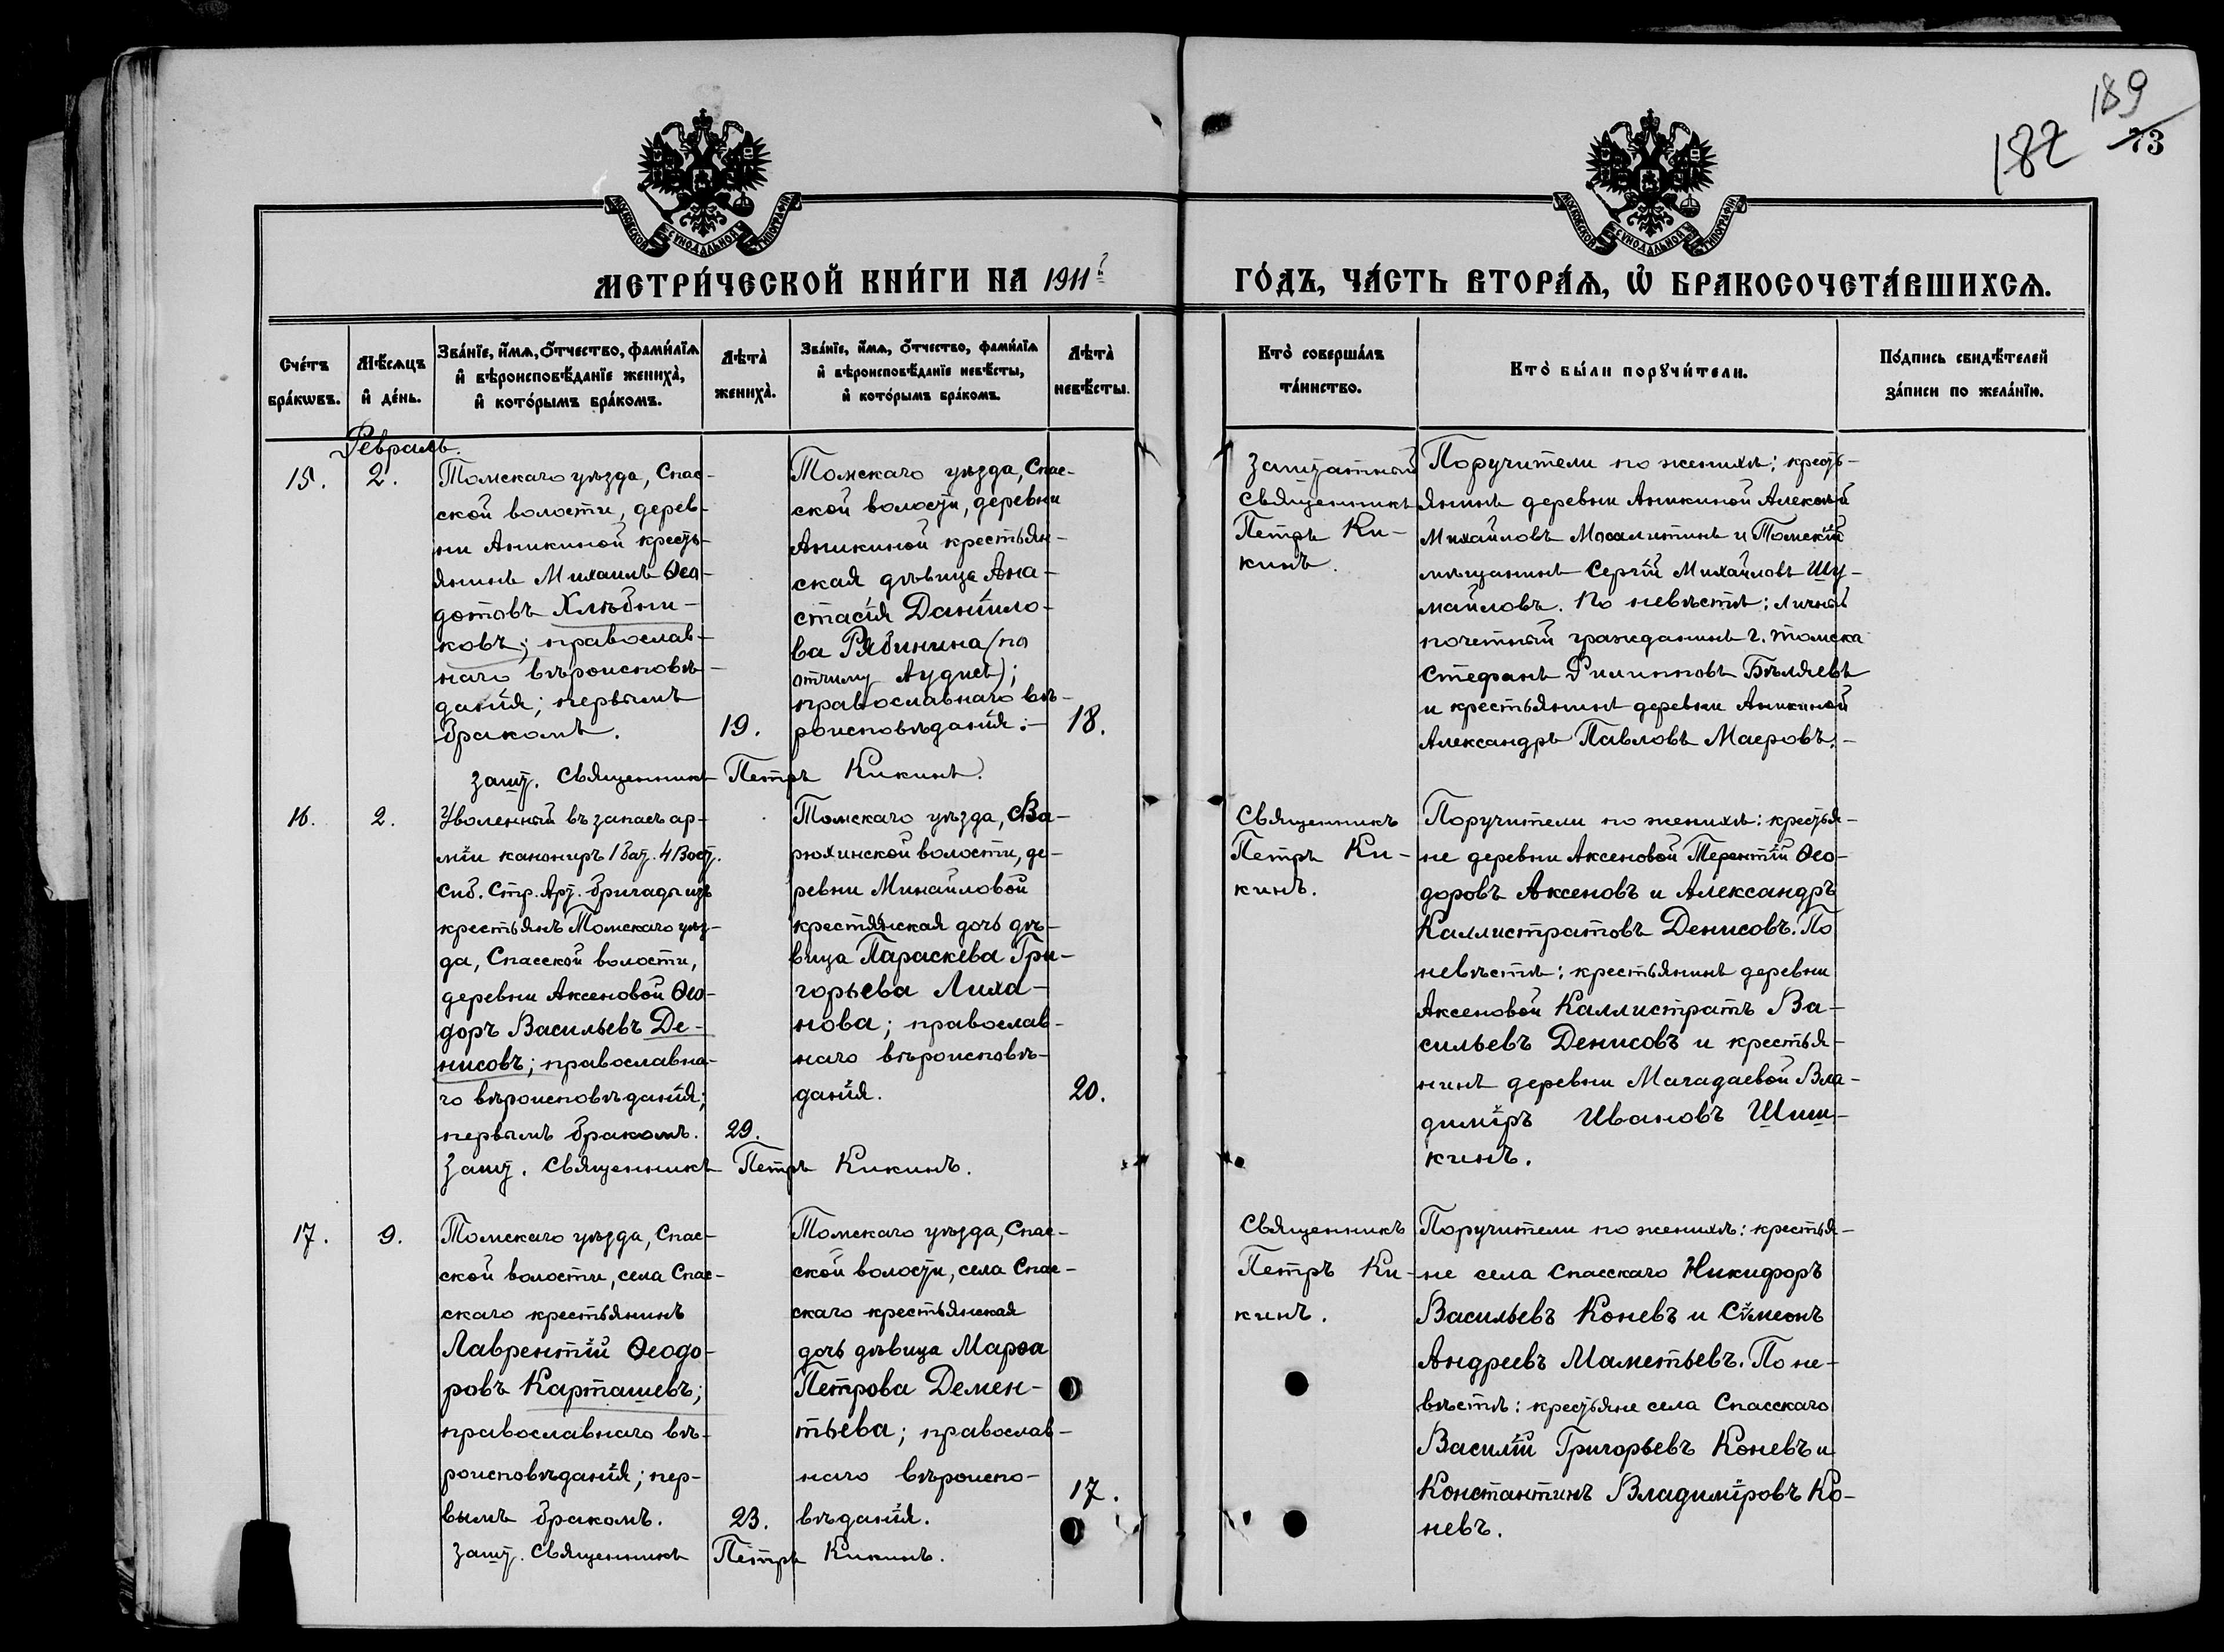 189
182 73
МОСКОВСКОЙ СУНОДАЛЬНОЙ ТИПОГРАФІИ
МОСКОВСКОЙ СУНОДАЛЬНОЙ ТИПОГРАФІИ
МЕТРИ́ЧЕСКОЙ КНИ́ГИ НА 1911й
ГО́ДЪ, ЧА́СТЬ ВТОРА́Ѧ, Ѽ БРАКОСОЧЕТА́ВШИХСѦ.
Сче́тъ бра́кѡвъ.
Мѣ́сѧцъ и҆ де́нь.
Зва́нїе, и҆́мѧ, ѻ҆́тчество, фами́лїѧ
и҆ вѣроисповѣ́данїе жениха̀,
и҆ кото́рымъ бра́комъ.
Лѣ́та̀ жениха̀.
Зва́нїе, и҆́мѧ, ѻ҆́тчество, фами́лїѧ
и҆ вѣроисповѣ́данїе невѣ́сты,
и҆ кото́рымъ бра́комъ.
Лѣ́та̀ невѣ́сты.
Кто̀ соверша́лъ та́инство.
Кто̀ бы́ли порꙋчи́тели.
По́дпись свидѣ́телей за́писи по жела́нїю.
Февраль.
15.
2.
Томскаго уѣзда, Спас-
ской волости, дерев-
ни Аникиной кресть-
янинъ Михаилъ Ѳео-
дотовъ Хлѣбни-
ковъ; православ-
наго вѣроисповѣ-
данія; первымъ
бракомъ.
19.
Томскаго уѣзда, Спас-
ской волости, деревни
Аникиной крестьян-
ская дѣвица Ана-
стасія Данiило-
ва Рябинина (по
отчиму Аудиев);
православнаго вѣ-
роисповѣданія.-
18.
Заштатный
священникъ
Петръ Ки-
кинъ.
Поручители по женихѣ: кресть-
янинъ деревни Аникиной Алексѣй
Михайловъ и Томскій
мѣщанинъ Сергій Михайловъ Шу-
майловъ. По невѣстѣ: личный
почетный гражданинъ г. Томска
Стефанъ Филипповъ Бѣляевъ
и крестьянинъ деревни Аникиной
Александръ Павловъ Маеровъ.-
Зашт. Священникъ Петръ Кикинъ.
16.
2.
Уволенный въ запасъ ар-
міи канониръ 1 бат. 4 Вост.
Сиб. Стр. Арт. бригады изъ
крестьянъ Томскаго уѣз-
да, Спасской волости,
деревни Аксеновой Ѳео-
доръ Васильевъ Де-
нисовъ; православна-
го вѣроисповѣданія;
первымъ бракомъ.
29.
Томскаго уѣзда, Ва-
рюхинской волости, де-
ревни Михайловой
крестьянская дочь дѣ-
вица Параскева Гри-
горьева Лиха-
нова; православ-
наго вѣроисповѣ-
данія.
20.
Священникъ
Петръ Ки-
кинъ.
Поручители по женихѣ: крестья-
не деревни Аксеновой Терентій Ѳео-
доровъ Аксеновъ и Александръ
Каллистратовъ Денисовъ. По
невѣстѣ: крестьянинъ деревни
Аксеновой Каллистратъ Ва-
сильевъ Денисовъ и крестья-
нинъ деревни Магадаевой Вла-
диміръ Ивановъ Шиш-
кинъ.
Зашт. Священникъ Петръ Кикинъ.
17.
9.
Томскаго уѣзда, Спас-
ской волости, села Спас-
скаго крестьянинъ
Лаврентій Ѳеодо-
ровъ Карташевъ;
православнаго вѣ-
роисповѣданія; пер-
вымъ бракомъ.
23.
Томскаго уѣзда, Спас-
ской волости, села Спас-
скаго крестьянская
дочь дѣвица Марѳа
Петрова Демен-
тьева; православ-
наго вѣроиспо-
вѣданія.
17.
Священникъ
Петръ Ки-
кинъ.
Поручители по женихѣ: крестья-
не села Спасскаго Никифоръ
Васильевъ Коневъ и Сѵмеонъ
Андреевъ Маметьевъ. По не-
вѣстѣ: крестьяне села Спасскаго
Василій Григорьевъ Коневъ и
Константинъ Владиміровъ Ко-
невъ.
Зашт. Священникъ Петръ Кикинъ.